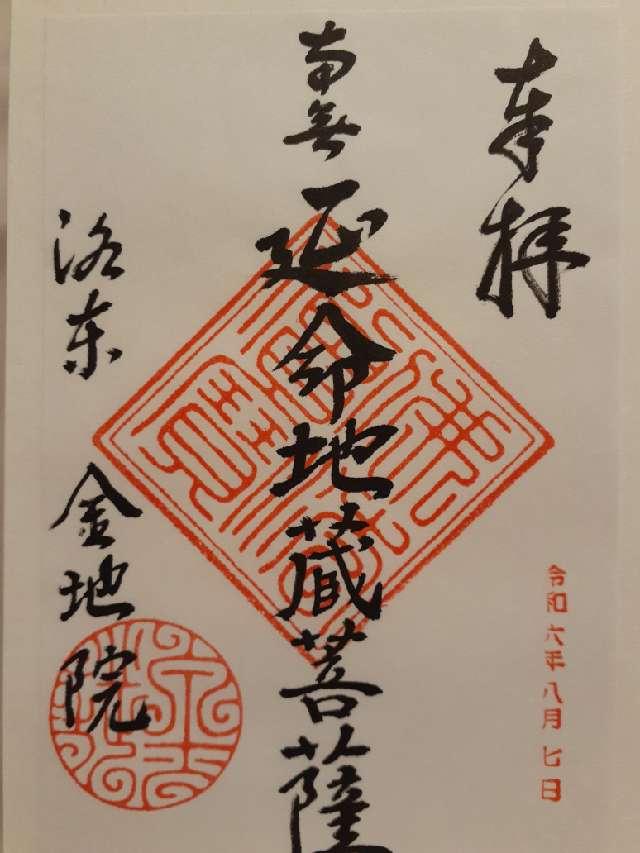 奉拝
令和六年八月七日
南無延命地蔵菩薩
洛東 金地院